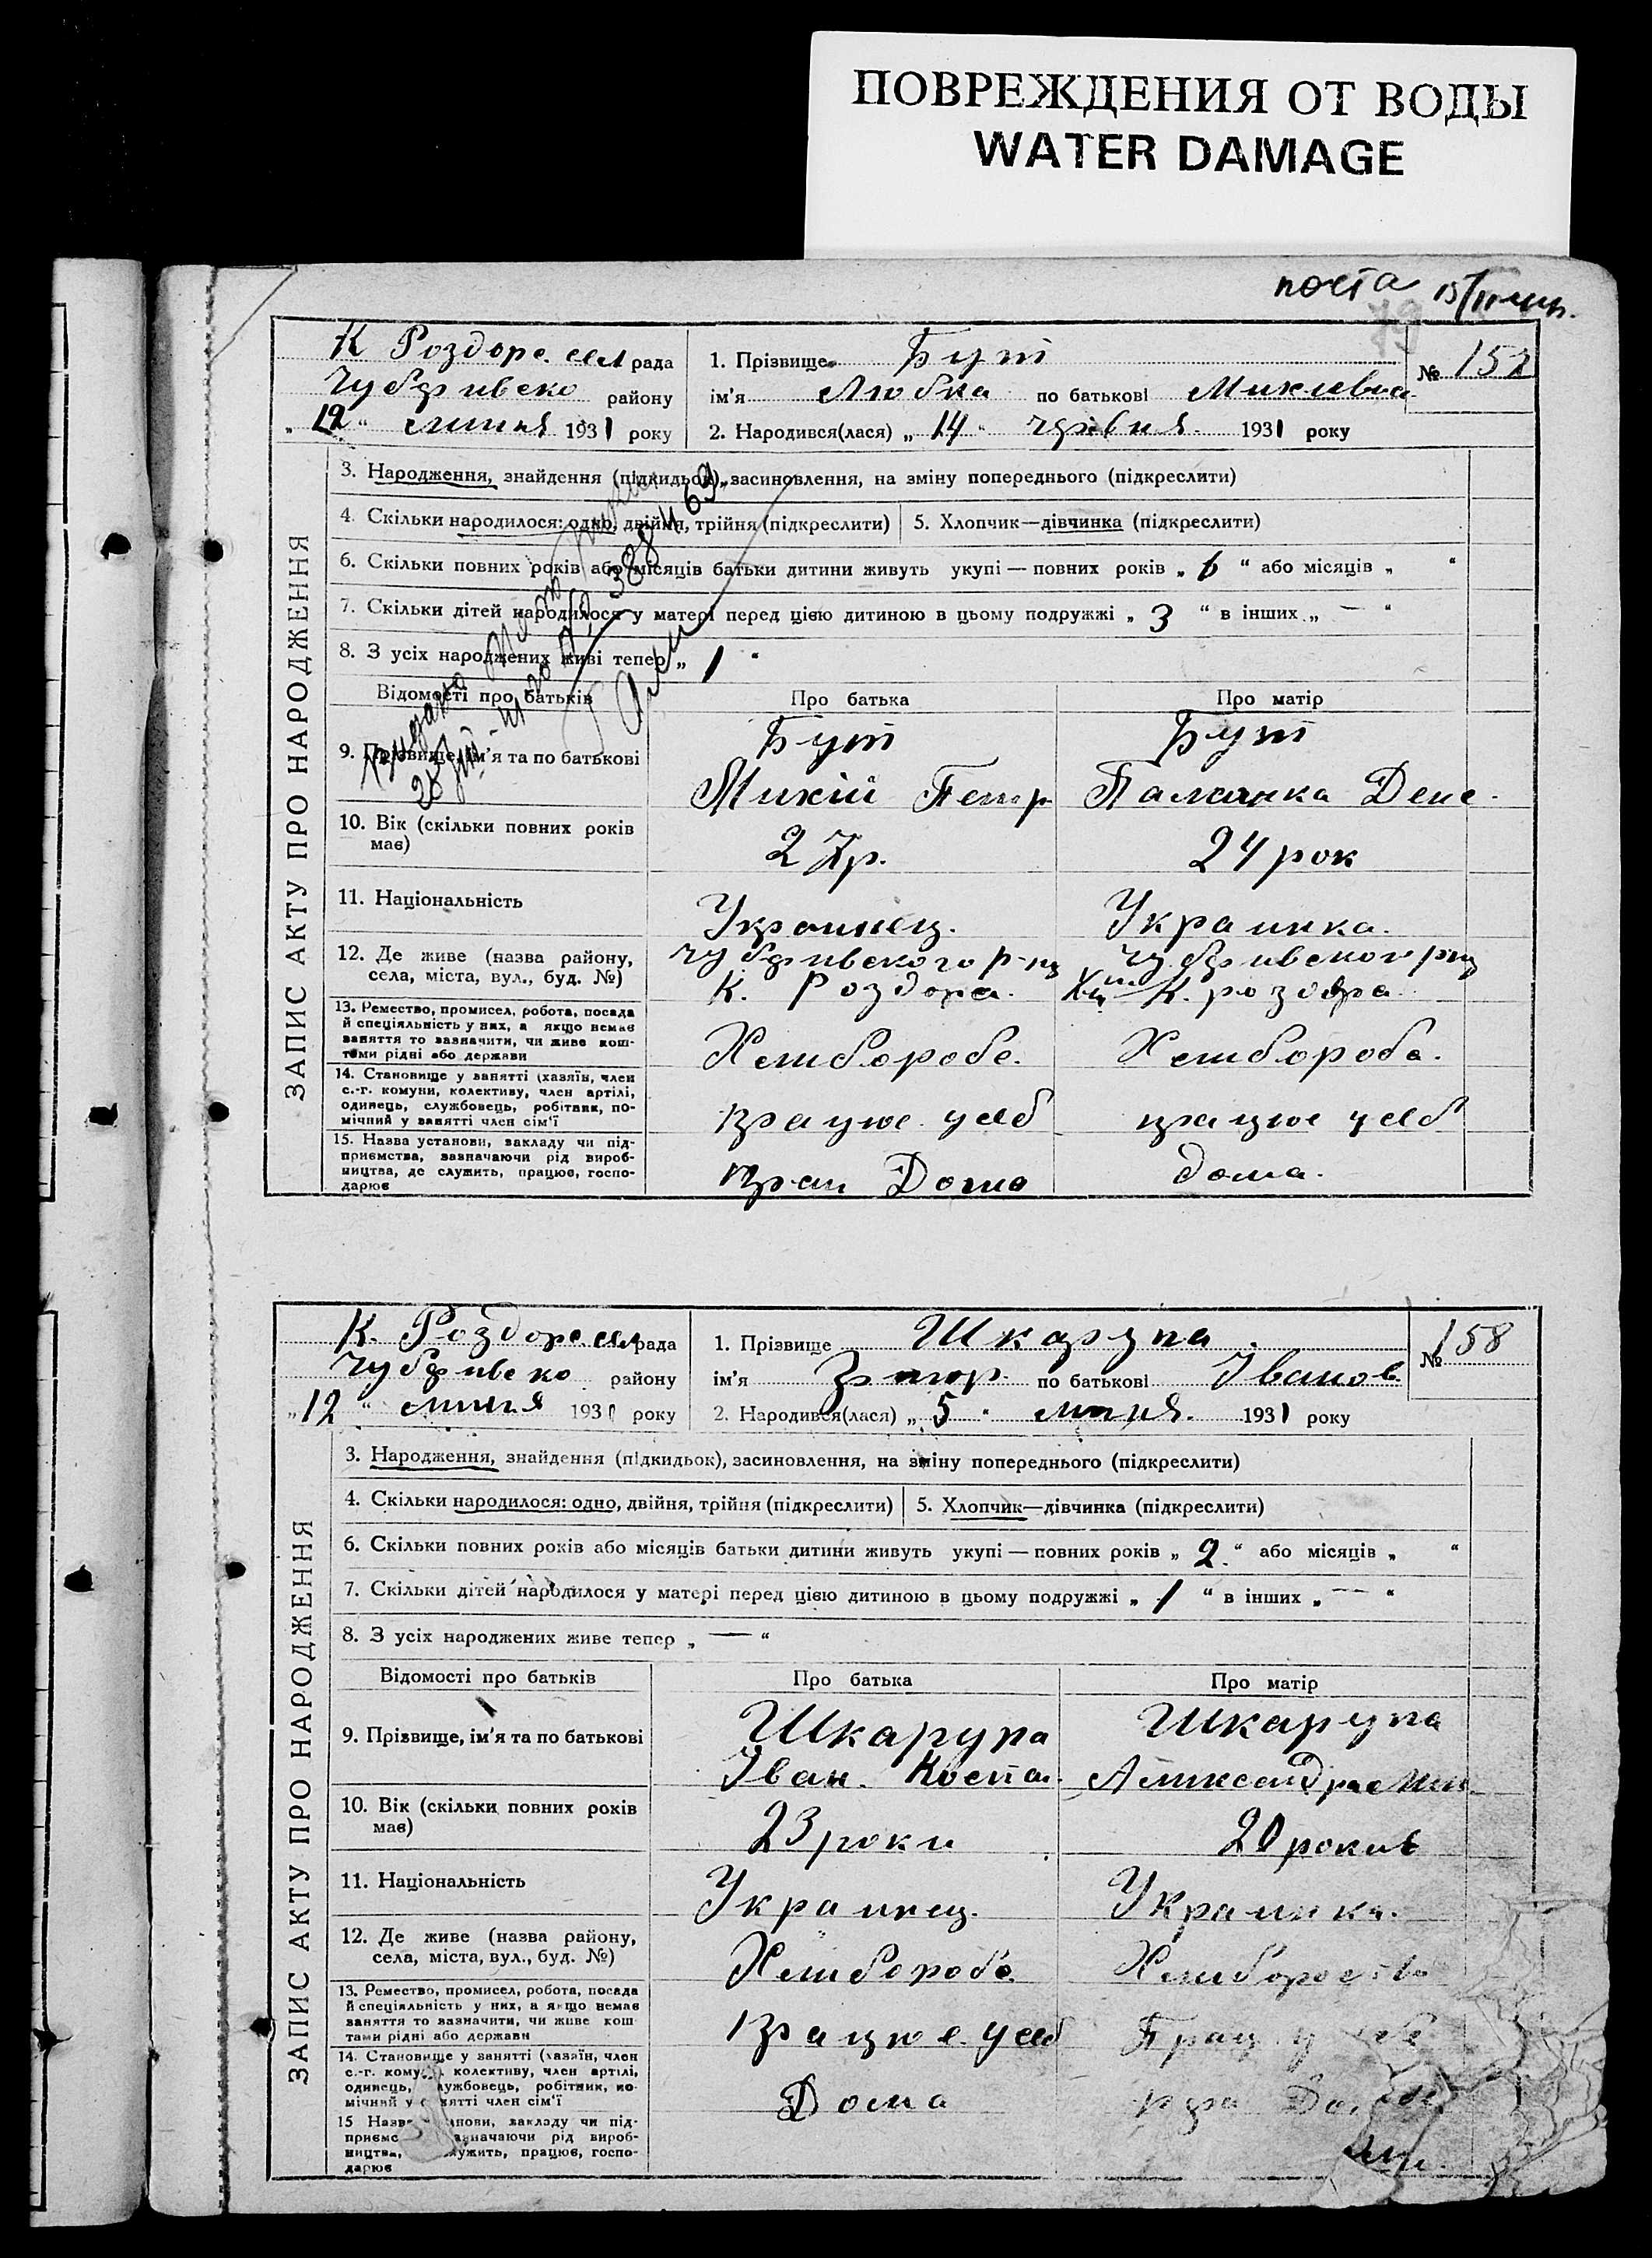 ПОВРЕЖДЕНИЯ ОТ ВОДЫ
WATER DAMAGE
поста
К Роздоре. сел рада
Чубаривско району
"12" липня 1931 року
1. Прізвище Бут
ім'я Любка по батькові
2. Народився(лася) „14" червня 1931 року
№ 152
ЗАПИС АКТУ ПРО НАРОДЖЕННЯ
3. Народження, знайдення (підкидьок), засиновлення, на зміну попереднього (підкреслити)
4. Скільки народилося: одно, двійня, трійня (підкреслити)
5. Хлопчик—дівчинка (підкреслити)
6. Скільки повних років або місяців батьки дитини живуть укупі — повних років „6" або місяців „ "
7. Скільки дітей народилося у матері перед цією дитиною в цьому подружжі „3" в інших „—"
8. З усіх народжених живі тепер „1"
Відомості про батьків
Про батька
Про матір
9. Прізвище, ім'я та по батькові
Бут
Михій Петр
Бут
Деис.
10. Вік (скільки повних років має)
27р.
24 рок
11. Національність
Украинец.
Украинка.
12. Де живе (назва району, села, міста, вул., буд. №)
Чубаривского р-ну
К. Роздора.
Чубаривского рну
К. роздора
13. Ремество, промисел, робота, посада й спеціяльність у них, а якщо немає заняття то зазначити, чи живе коштами рідні або держави
Хлиборобе.
Хлибороба.
14. Становище у занятті (хазяїн, член с.-г. комуни, колективу, член артілі, одинець, службовець, робітник, помічний у занятті член сім'ї
працюе усеб
працюе усеб
15. Назва установи, закладу чи підприємства, зазначаючи рід виробництва, де служить, працює, господарює
Дома
дома.
К. Роздоре сел рада
Чубаривско району
"12" липня 1931 року
1. Прізвище Шкарупа.
ім'я по батькові Іванов
2. Народився(лася) „5" липня. 1931 року
№ 158
ЗАПИС АКТУ ПРО НАРОДЖЕННЯ
3. Народження, знайдення (підкидьок), засиновлення, на зміну попереднього (підкреслити)
4. Скільки народилося: одно, двійня, трійня (підкреслити)
5. Хлопчик—дівчинка (підкреслити)
6. Скільки повних років або місяців батьки дитини живуть укупі — повних років „2" або місяців „ "
7. Скільки дітей народилося у матері перед цією дитиною в цьому подружжі „1" в інших „—"
8. З усіх народжених живе тепер „—"
Відомості про батьків
Про батька
Про матір
9. Прізвище, ім'я та по батькові
Шкарупа
Іван. Коста.
Шкарупа
10. Вік (скільки повних років має)
23 роки
20 рокив
11. Національність
Украинец.
Украинка.
12. Де живе (назва району, села, міста, вул., буд. №)
Хлибороба
13. Ремество, промисел, робота, посада й спеціяльність у них, а якщо немає заняття то зазначити, чи живе коштами рідні або держави
працюе усеб
Прац у
14. Становище у занятті (хазяїн, член с.-г. колективу, член артілі, одинець, службовець, робітник, помічний у занятті член сім'ї
Дома
15 Назва установи, закладу чи підприємства, зазначаючи рід виробництва, служить, працює, господарює